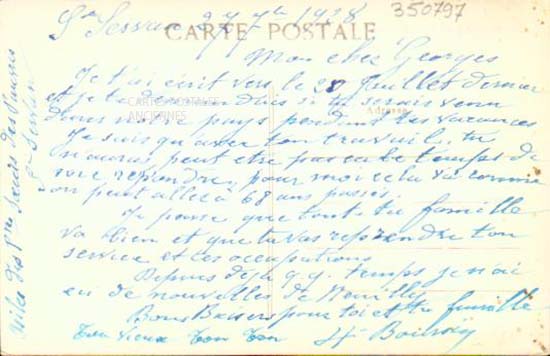 St Servan 27 7bre 1928
350797
CARTE POSTALE
Mon cher Georges
Je t'ai écrit vers le 28 Juillet dernier
et je te demandais si tu serais venu
dans notre pays pendant tes vacances
Adresse
CARTES POSTALES
ANCIENNES
Je sais qu'avec ton travail, tu
n'auras peut être pas eu le temps de
me reprendre, pour moi cela va comme
on peut aller à 68 ans passés.
Je pense que toute ta famille
va bien et que tu vas reprendre ton
service et tes occupations
Depuis déjà q.q. temps je n'ai
eu de nouvelles de Neuilly
Bons Baisers pour toi et ta famille
Ton vieux Ton Ton
Asiles des Ptes Soeurs des Pauvres
St Servan